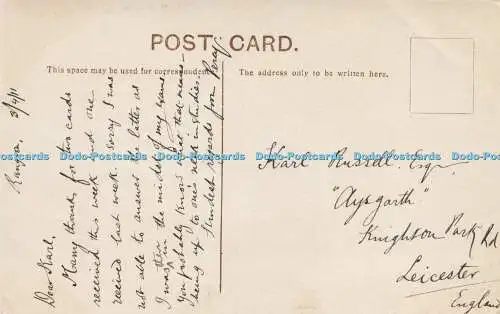 POST CARD.
This space may be used for correspondence.
The address only to be written here.
Rangoon, 3/4/11
Dear Karl,
Many thanks for two cards
received this week and one
received last week. Sorry I was
not able to answer the latter, as
I was in the midst of my exams
You probably know what that means -
being up to one's neck in studies.
Kindest regards from Percy.
Karl Russell. Esqr.
"Aysgarth"
Knighton Park Rd
Leicester
England
Dodo-Postcards Dodo-Postcards Dodo-Postcards Dodo-Postcards